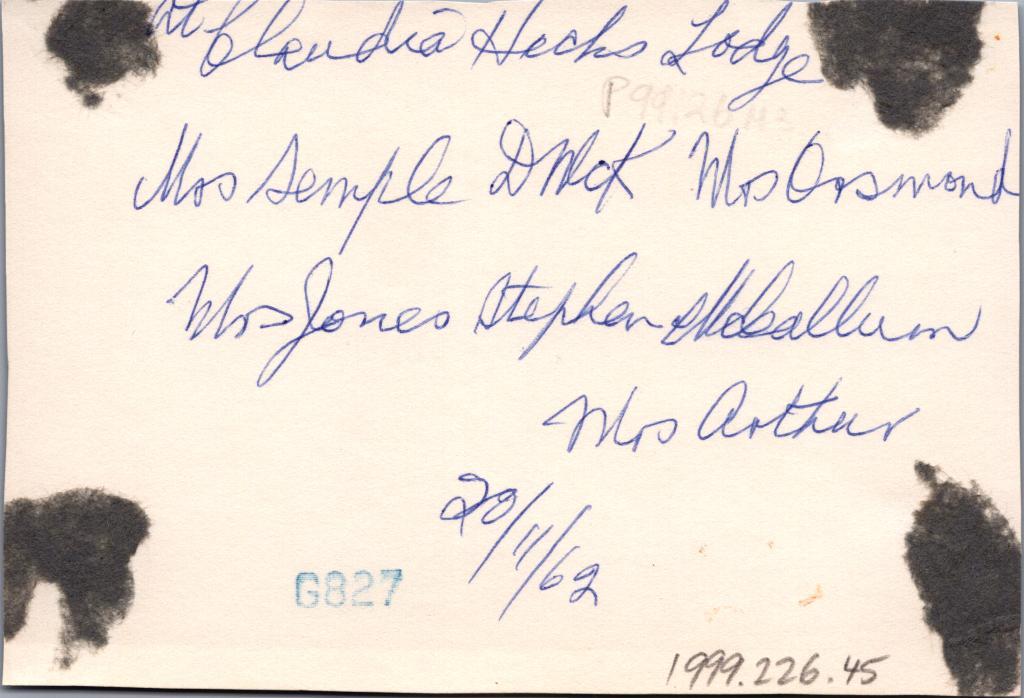 At Claudia Hicks Lodge
Mrs Semple DMcK Mrs Orsmond
Mrs Jones Stephen McCallum
Mrs Arthur
20/11/62
G827
1999.226.45